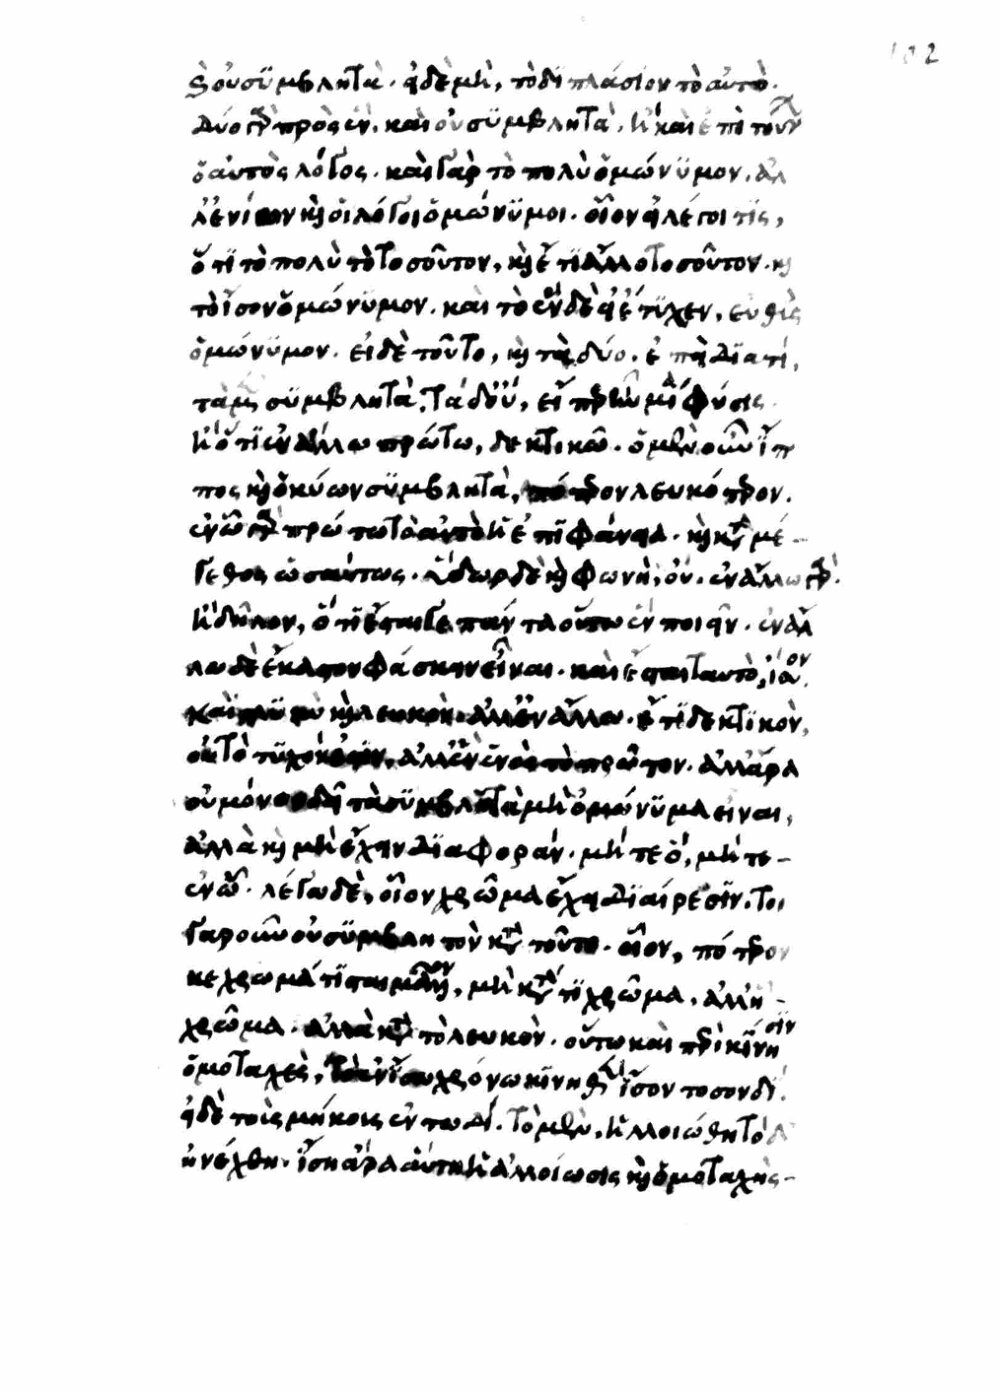 οὐ σϋμβλητὰ. ἠ δὲ μὴ, τὸ δϊπλάσϊον τὸ αὐτὸ.
δύο γὰρ πρὸς ἕν. καὶ οὐ σϋμβλητὰ. ἢ καὶ ἐπὶ τούτων
ὁ αὐτὸς λόγος. καὶ γὰρ τὸ πολὺ ὁμώνϋμον. ἀλ
λ' ἐνίων καὶ οἱ λόγοι ὁμώνϋμοι. οἷον εἰ λέγοι τϊς,
ὅτϊ τὸ πολὺ τὸ τοσοῦτον, καὶ ἔτϊ ἄλλο τοσοῦτον. καὶ
τὸ ἴσον ὁμώνϋμον. καὶ τὸ ἓν δὲ εἰ ἔτϋχεν, εὐθὺς
ὁμώνϋμον. εἰ δὲ τοῦτο, καὶ τὰ δύο. ἐπεὶ δϊατί,
τὰ μὲν σϋμβλητὰ. τὰ δ' οὔ, εἴπερ ἦν μία φύσις.
ἢ ὅτϊ ἐν ἄλλω πρώτω, δεκτικῶ. ὁ μὲν οὖν ἵπ
πος καὶ ὁ κύων σϋμβλητὰ, πότερον λευκότερον.
ἐν ὧ γὰρ πρώτω τὸ αὐτὸ ἡ ἐπϊφάνεια. καὶ κατὰ μέ-
γεθος ὡσαύτως. ὕδωρ δὲ καὶ φωνὴ, οὔ. ἐν ἄλλω γάρ.
ἢ δῆλον, ὅτϊ ἔσται γε πάντα οὕτω ἓν ποιεῖν. ἐν ἄλ
λω δὲ ἕκαστον φάσκειν εἶναι. καὶ ἔσται ταυτὸ, ἴσον
καὶ γλϋκὺ καὶ λευκὸν. ἀλλ' ἐν ἄλλω. ἔτϊ δεκτϊκὸν,
οὐ τὸ τϋχὸν ἐστὶν, ἀλλ' ἓν ἑνὸς τὸ πρῶτον. ἀλλ' ἆρα
οὐ μόνον δεῖ τὰ σϋμβλητὰ μὴ ὁμώνϋμα εἶναι,
ἀλλὰ καὶ μὴ ἔχειν δϊαφοράν. μήτε ὃ, μήτε-
ἐν ὧ. λέγω δὲ, οἷον χρῶμα ἔχει δϊαίρεσϊν. τοι
γαροῦν οὐ σϋμβλητὸν κατὰ τοῦτο. οἷον, πότερον
κεχρωμάτϊσται μᾶλλον, μὴ κατὰ τϊ χρῶμα, ἀλλ' ἧ-
χρῶμα. ἀλλὰ κατὰ τὸ λευκὸν. οὕτω καὶ περὶ κίνησϊν
ὁμοταχὲς, τὸ ἐν ἴσω χρόνω κϊνηθὲν ἴσον τοσονδί.
εἰ δὲ τοῖς μήκοις ἐν τωδί. τὸ μὲν, ἠλλοιώθη τὸ δ'
ἠνέχθη. ἴση ἄρα αὕτη ἡ ἀλλοίωσις καὶ ὁμοταχὴς-